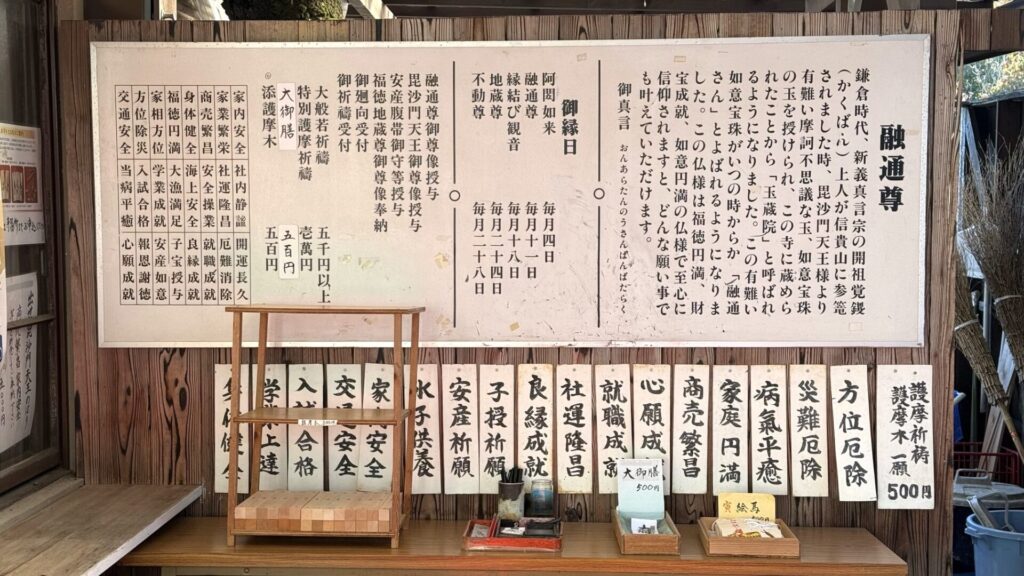 融通尊
鎌倉時代、新義真言宗の開祖覚鑁
(かくばん)上人が信貴山に参籠
されました時、毘沙門天王様より
有難い摩訶不思議な玉、如意宝珠
の玉を授けられ、この寺に蔵めら
れたことから「玉蔵院」と呼ばれ
るようになりました。この有難い
如意宝珠がいつの時からか「融通
さん」とよばれるようになりま
した。この仏様は福徳円満、財
宝成就、如意円満の仏様で至心に
信仰されますと、どんな願い事で
も叶えていただけます。
御真言 おんあらたんのうさんばんばたらく
御縁日
阿閦如来 毎月四日
融通尊 毎月十一日
縁結び観音 毎月十八日
地蔵尊 毎月二十四日
不動尊 毎月二十八日
融通尊御尊像授与
毘沙門天王御尊像授与
安産腹帯御守等授与
福徳地蔵尊御尊像奉納
御廻向受付
御祈祷受付
大般若祈祷 五千円以上
特別護摩祈祷 壱萬円
大御膳 五百円
添護摩木 五百円
家内安全 社内静謐 開運長久
家業繁栄 社運隆昌 厄難消除
商売繁昌 安全操業 就職成就
身体健全 海上安全 良縁成就
福徳円満 大漁満足 子宝授与
家相方位 学業成就 安産如意
方位除災 入試合格 報恩謝徳
交通安全 当病平癒 心願成就
護摩祈祷
護摩木一願
500円
方位厄除
災難厄除
病氣平癒
家庭円満
商売繁昌
心願成
就職成就
社運隆昌
良縁成就
子授祈願
安産祈願
水子供養
家内安全
交通安全
入試合格
学業上達
身体健全
大御膳
500円
絵馬